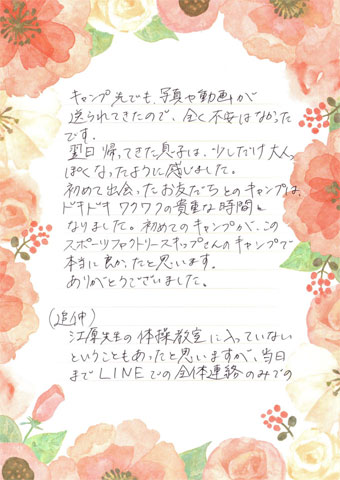 キャンプ先でも、写真や動画が
送られてきたので、全く不安はなかった
です。
翌日帰ってきた息子は、少しだけ大人っ
ぽくなったように感じました。
初めて出会ったお友だちとのキャンプは、
ドキドキワクワクの貴重な時間に
なりました。初めてのキャンプが、この
スポーツファクトリースキップさんのキャンプで
本当に良かったと思います。
ありがとうございました。
(追伸)
江原先生の体操教室に入っていない
ということもあったと思いますが、当日
までLINEでの全体連絡のみでの